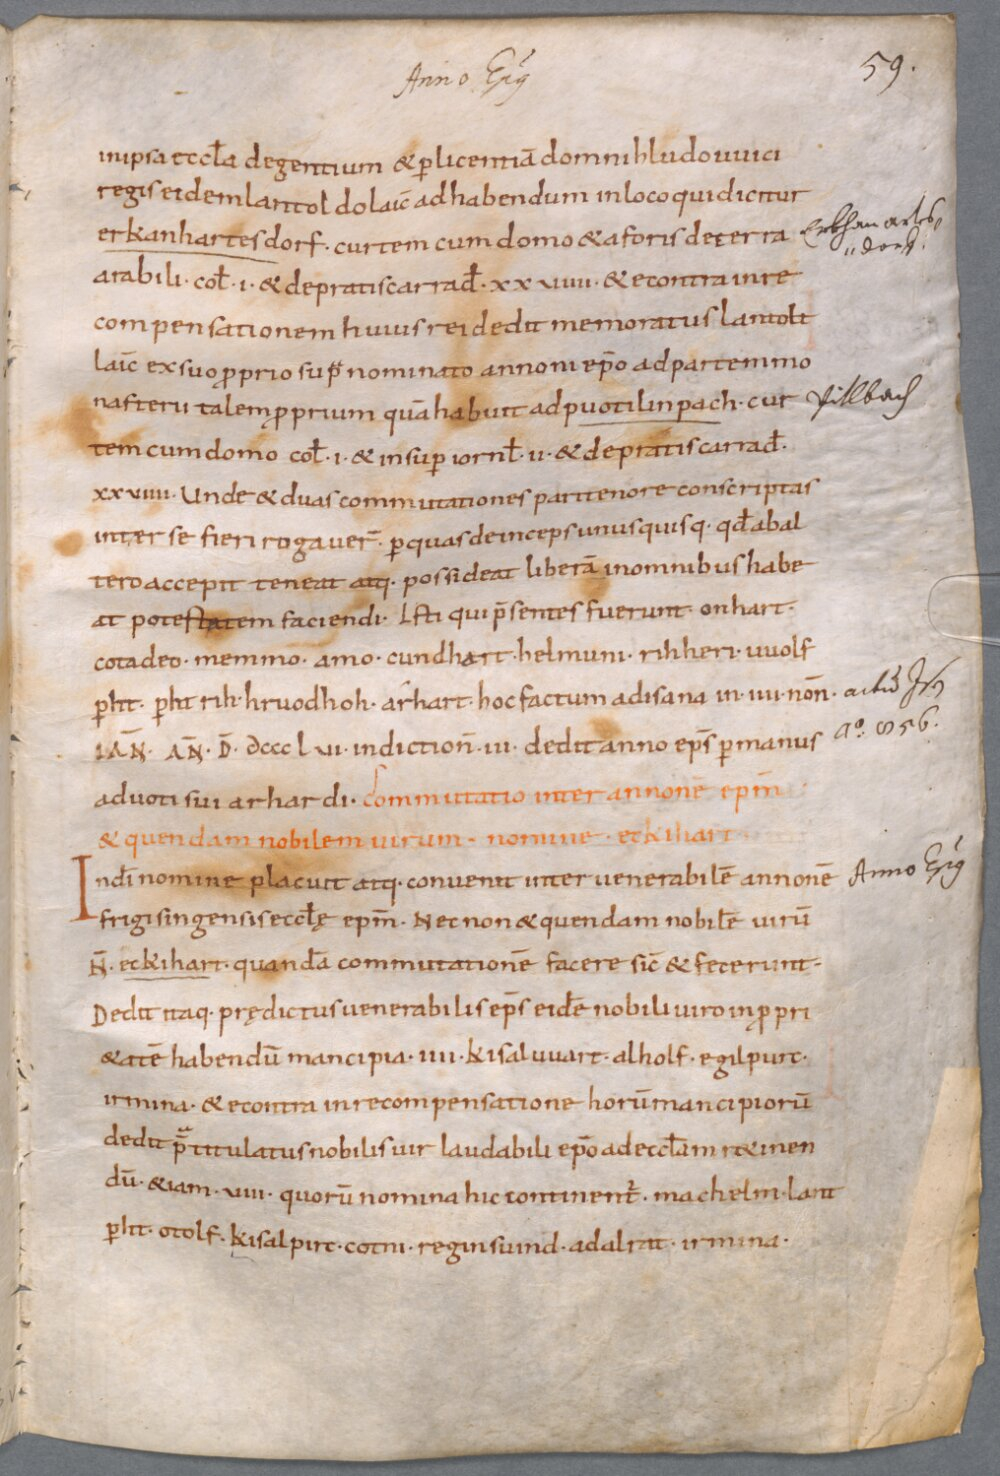 Anno Epō
59.
in ipsa eccła degentium & p̱ licentiā domni hludouuici
regis eidem lantoldo laic̄ ad habendum in loco qui dicitur
erkanhartesdorf · curtem cum domo & aforis de terra
Erkhanarts
dorf.
arabili · coł · i · & de pratis carrad̄ · xxviiii · & econtra in re
compensationem huius rei dedit memoratus lantolt
laic̄ ex suo proprio sup̱ nominato annoni ep̄o ad partem mo
nasterii talem proprium quā habuit ad puotilinpach · cur
Pillbach
tem cum domo coł · i · & insup̱ iornł · ii · & de pratis carrad̄ ·
xxviiii · Unde & duas commutationes pari tenore conscriptas
inter se fieri rogauer̄ · p̱ quas deinceps unusquisq · qđ ab al
tero accepit teneat atq · possideat liberā in omnibus habe
at potestatem faciendi · Isti qui p̄sentes fuerunt · onhart ·
cotadeo · memmo · amo · cundhart · helmuni · rihheri · uuolf
p̱ht · p̱ht rih · hruodhoh · arhart · hoc factum ad isana in · iiii · noñ ·
IAÑ · AÑ · D̄ · dccclvi · indictioñ · iii · dedit anno ep̄s p̱ manus
a° 856.
aduoti sui arhardi · Commutatio inter annonē ep̄m
& quendam nobilem uirum · nomine · eckihart
In dī nomine placuit atq · conuenit inter uenerabilē annonē
Anno Epō
frigisingensis eccłę ep̄m · Nec non & quendam nobilē uirū
Ñ · eckihart · quandā commutationē facere sic̄ & fecerunt ·
Dedit itaq · prędictus uenerabilis ep̄s eidē nobili uiro in propri
&atē habendū mancipia · iiii · kisaluuart · alholf · egilpurc ·
irmina · & econtra in recompensatione horū mancipiorū
dedit p̄titulatus nobilis uir laudabili ep̄o ad eccłam r&inen
dū · &iam · viii · quorū nomina hic continent̄ · machelm · lant
p̱ht · otolf · kisalpirc · cotni · reginsuind · adalrat · irmina ·